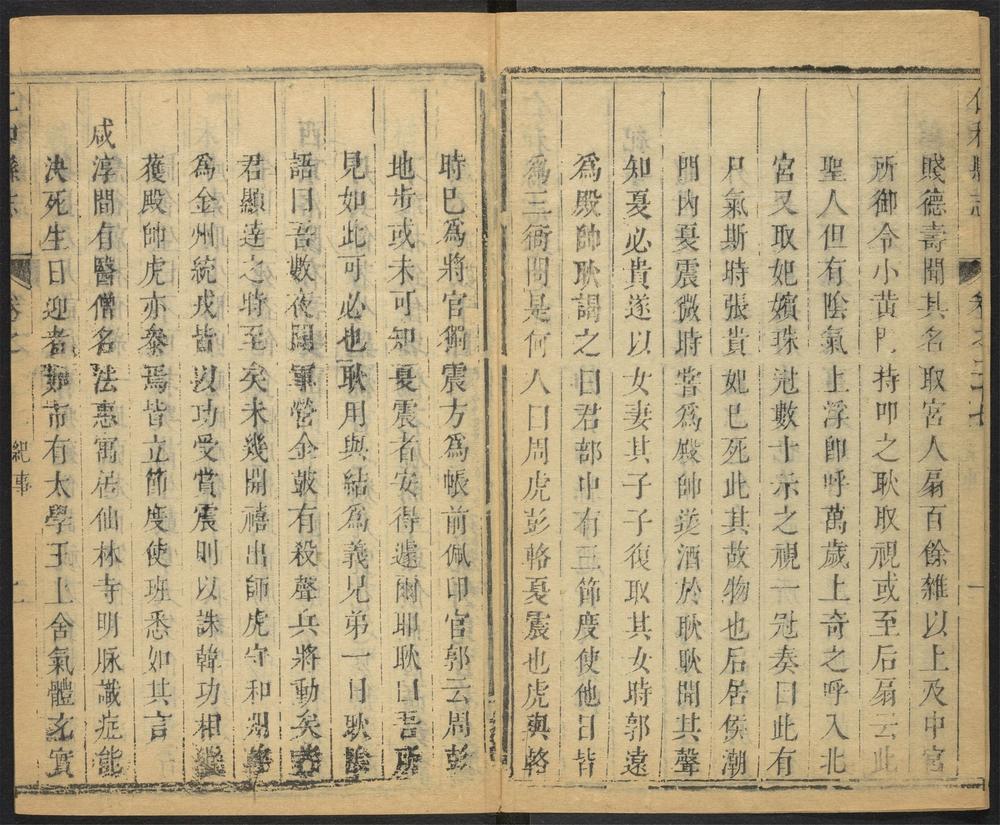 賤德壽聞其名取宮人扇百餘雜以上及中宮
所御令小黃門持叩之耿取視或至后扇云此
聖人但有陰氣上浮卽呼萬歲上奇之呼入北
宮又取妃嬪珠冠數十示之視一冠奏曰此有
尸氣斯時張貴妃巳死此其故物也后居侯潮
門內夏震微時嘗爲殿帥送酒於耿耿聞其聲
知夏必貴遂以女妻其子子復取其女時郭遠
爲殿帥耿謂之曰君部中有三節度使他日皆
爲三衙問是何人曰周虎彭輅夏震也虎與輅
時巳爲將官獨震方爲帳前佩印官郭云周彭
地步或未可知夏震者安得遽爾耶耿曰吾所
見如此可必也耿用與結爲義兄弟一日耿
語曰吾數夜聞軍營金鼓有殺聲兵將動矣
君顯達之時至矣未幾開禧出師虎守和州輅
爲金州統戎皆以功受賞震則以誅韓功相繼
獲殿帥虎亦叅焉皆立節度使班悉如其言
咸淳間有醫僧名法惠寓居仙林寺明脉識症能
決死生日迎者如市有太學王上舍氣體充實
仁和縣志
卷之
紀事
卷之二十七